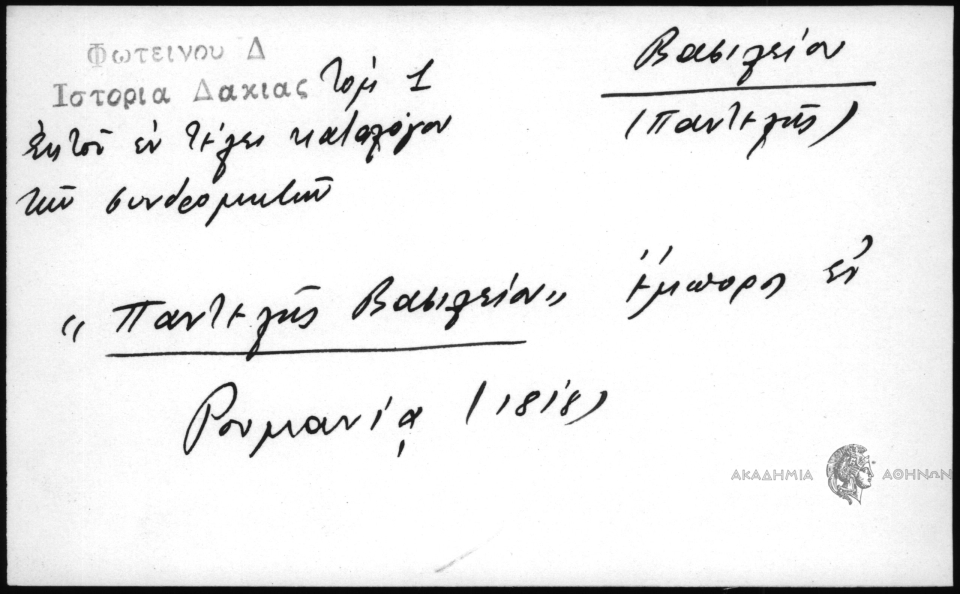 Φωτεινου Δ
Ιστορια Δακιας τομ 1
Ἐκ τοῦ ἐν τέλει καταλόγου
τῶν συνδρομητῶν
Βασιλείου
(Παντελῆς)
"Παντελῆς Βασιλείου" ἔμπορος ἐν
Ρουμανίᾳ (1818)
ΑΚΑΔΗΜΙΑ ΑΘΗΝΩΝ